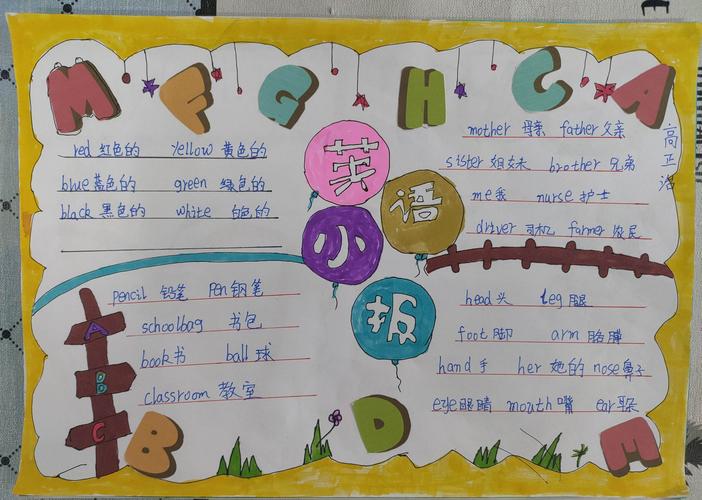 M F G H C A
英
语
小
报
red 红色的 yellow 黄色的
blue 蓝色的 green 绿色的
black 黑色的 white 白色的
mother 母亲 father 父亲
sister 姐妹 brother 兄弟
me 我 nurse 护士
driver 司机 farmer 农民
高正
pencil 铅笔 pen 钢笔
schoolbag 书包
book 书 ball 球
classroom 教室
head 头 leg 腿
foot 脚 arm 胳膊
hand 手 her 她的 nose 鼻子
eye 眼睛 mouth 嘴 ear 耳朵
A
B
C
B D E